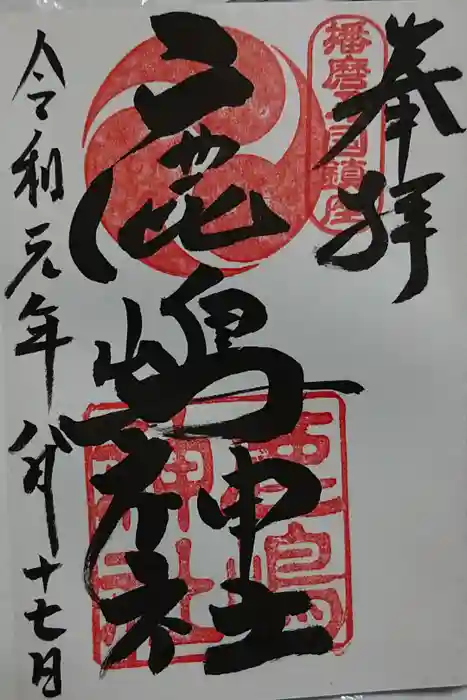 奉拝
播磨国鎮座
鹿嶋神社
鹿嶋神社
令和元年八月十七日